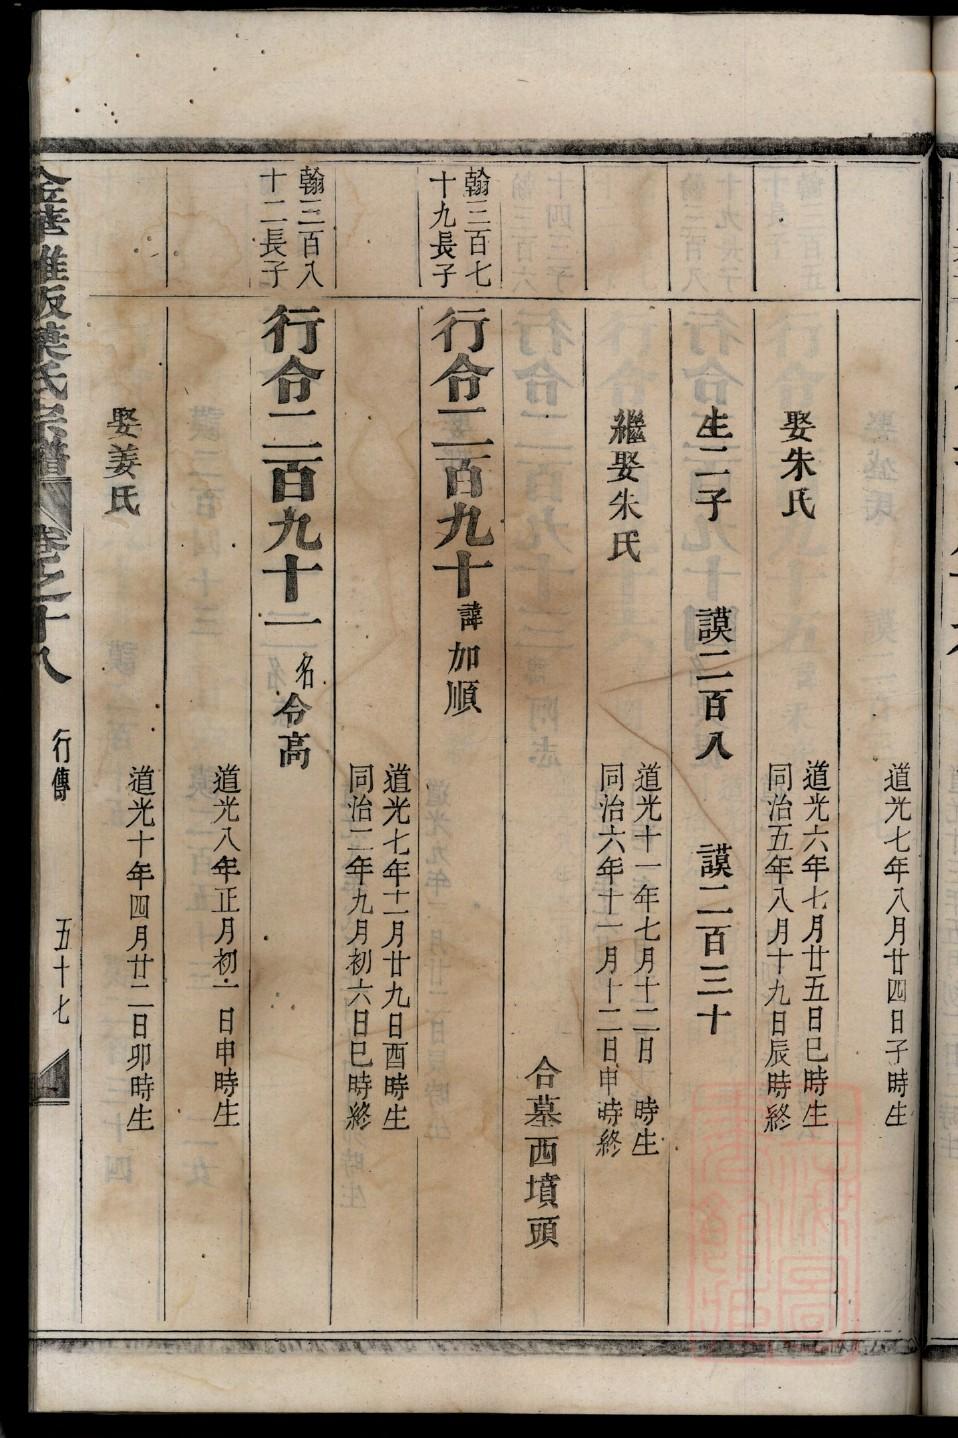 道光七年八月廿四日子時生
娶朱氏
道光六年七月廿五日巳時生
同治五年八月十九日辰時終
生二子 謨二百八 謨二百三十
繼娶朱氏
道光十一年七月十二日 時生
同治六年十一月十二日申時終
合墓西墳頭
翰三百七
十九長子
行令二百九十 諱加順
道光七年十二月廿九日酉時生
同治二年九月初六日巳時終
翰三百八
十二長子
行令二百九十一 名令高
道光八年正月初一日申時生
娶姜氏
道光十年四月廿二日卯時生
葉氏宗譜 卷之十八 行傳 五十七